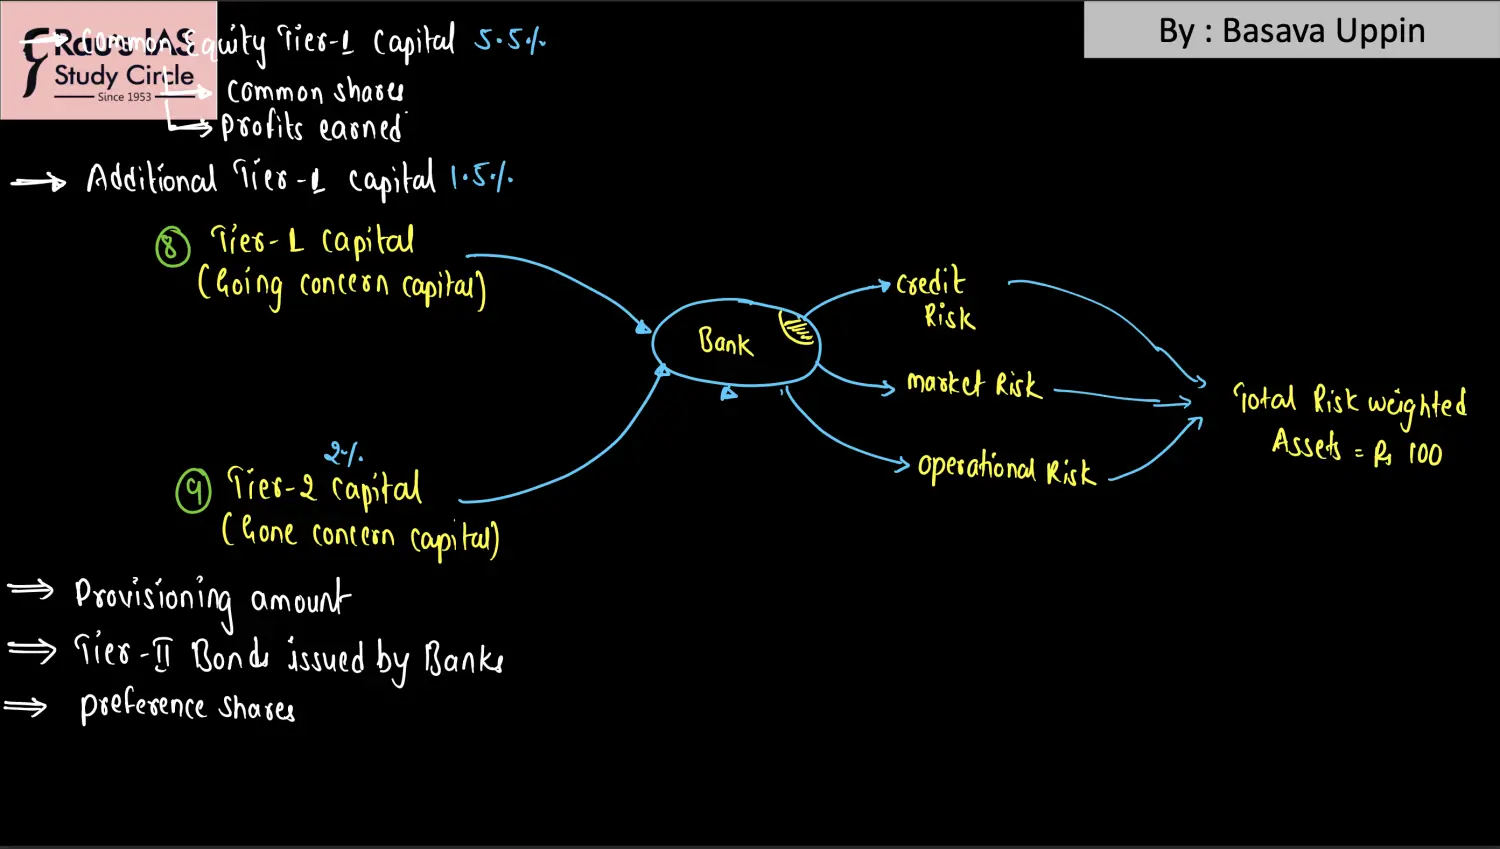 Rau's IAS
Study Circle
Since 1953
By : Basava Uppin
→ Common Equity Tier-1 Capital 5.5%
→ Common shares
→ Profits earned
→ Additional Tier-1 Capital 1.5%
8 Tier-1 Capital
(Going concern capital)
Bank
Credit
Risk
Market Risk
Operational Risk
Total Risk weighted
Assets = Rs 100
2%
9 Tier-2 Capital
(Gone concern capital)
⇒ Provisioning amount
⇒ Tier-II Bonds issued by Banks
⇒ Preference shares